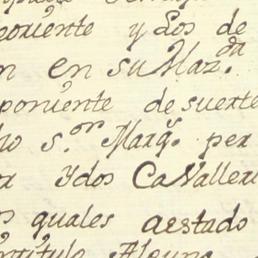 oriente y Los de
n en su Haz.da
poniente de suerte
ho s.or Marq.s per
r Ydos Cavalleri
s quales aestado
título Alguno